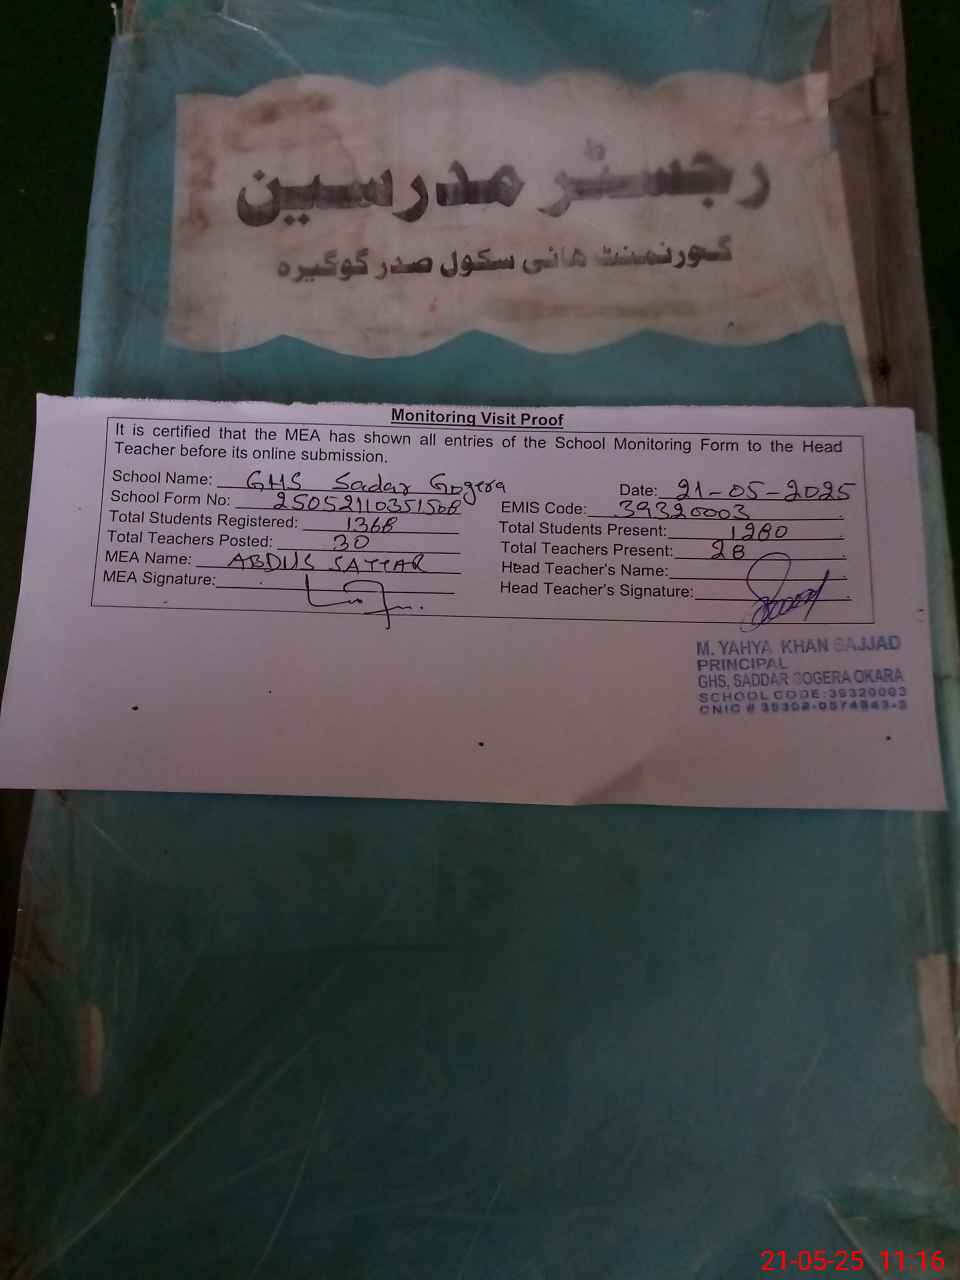 رجسٹر مدرسین
گورنمنٹ ہائی سکول صدر گوگیرہ
Monitoring Visit Proof
It is certified that the MEA has shown all entries of the School Monitoring Form to the Head
Teacher before its online submission.
School Name: GHS Sadar Gogera
Date: 21-05-2025
School Form No: 2505211035156B
EMIS Code: 39320003
Total Students Registered: 1368
Total Students Present: 1280
Total Teachers Posted: 30
Total Teachers Present: 28
MEA Name: ABDUS SATTAR
Head Teacher's Name:
MEA Signature:
Head Teacher's Signature:
M. YAHYA KHAN SAJJAD
PRINCIPAL
GHS, SADDAR GOGERA OKARA
SCHOOL CODE:39320003
CNIC #
21-05-25 11:16